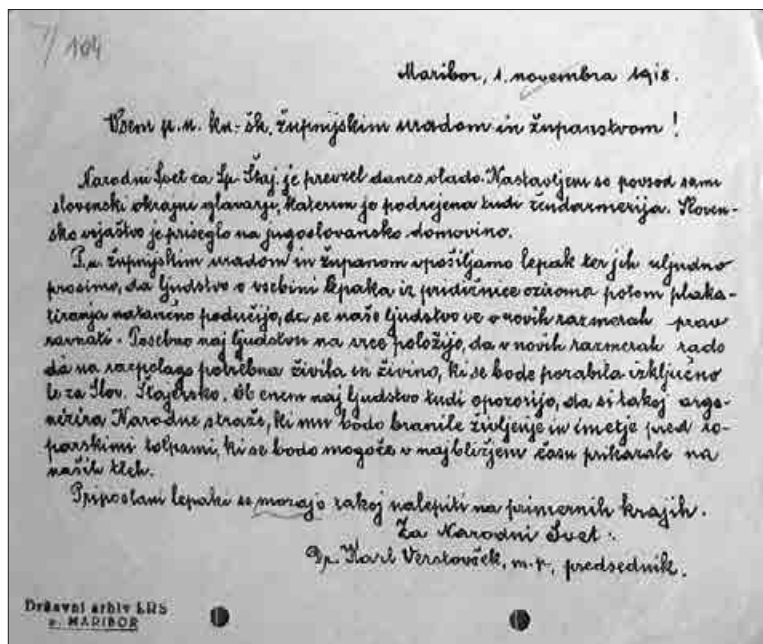 7/104
Maribor, 1. novembra 1918.
Vsem p. n. kn.-šk. župnijskim uradom in županstvom!
Narodni Svet za Sp. Štaj. je prevzel danes vlado. Nastavljeni so povsod sami
slovenski okrajni glavarji, katerim je podrejena tudi žendarmerija. Sloven-
sko vojaštvo je priseglo na jugoslovansko domovino.
P. n. župnijskim uradom in županom vpošiljamo lepak ter jih uljudno
prosimo, da ljudstvo o vsebini lepaka iz pridižnice oziroma potom plaka-
tiranja natančno podučijo, da se naše ljudstvo ve v novih razmerah prav
ravnati. Posebno naj ljudstvu na srce položijo, da v novih razmerah rado
dá na razpolago potrebna živila in živino, ki se bode porabila izključno
le za Slov. Štajersko. Ob enem naj ljudstvo tudi opozorijo, da si takoj orga-
nizira Narodne straže, ki mu bodo branile življenje in imetje pred ro-
parskimi tolpami, ki se bodo mogoče v najbližjem času prikazale na
naših tleh.
Pripostani lepaki se morajo takoj nalepiti na primernih krajih.
Za Narodni Svet:
Dr. Karl Verstovšek, m. p., predsednik.
Državni arhiv LRS
v MARIBOR